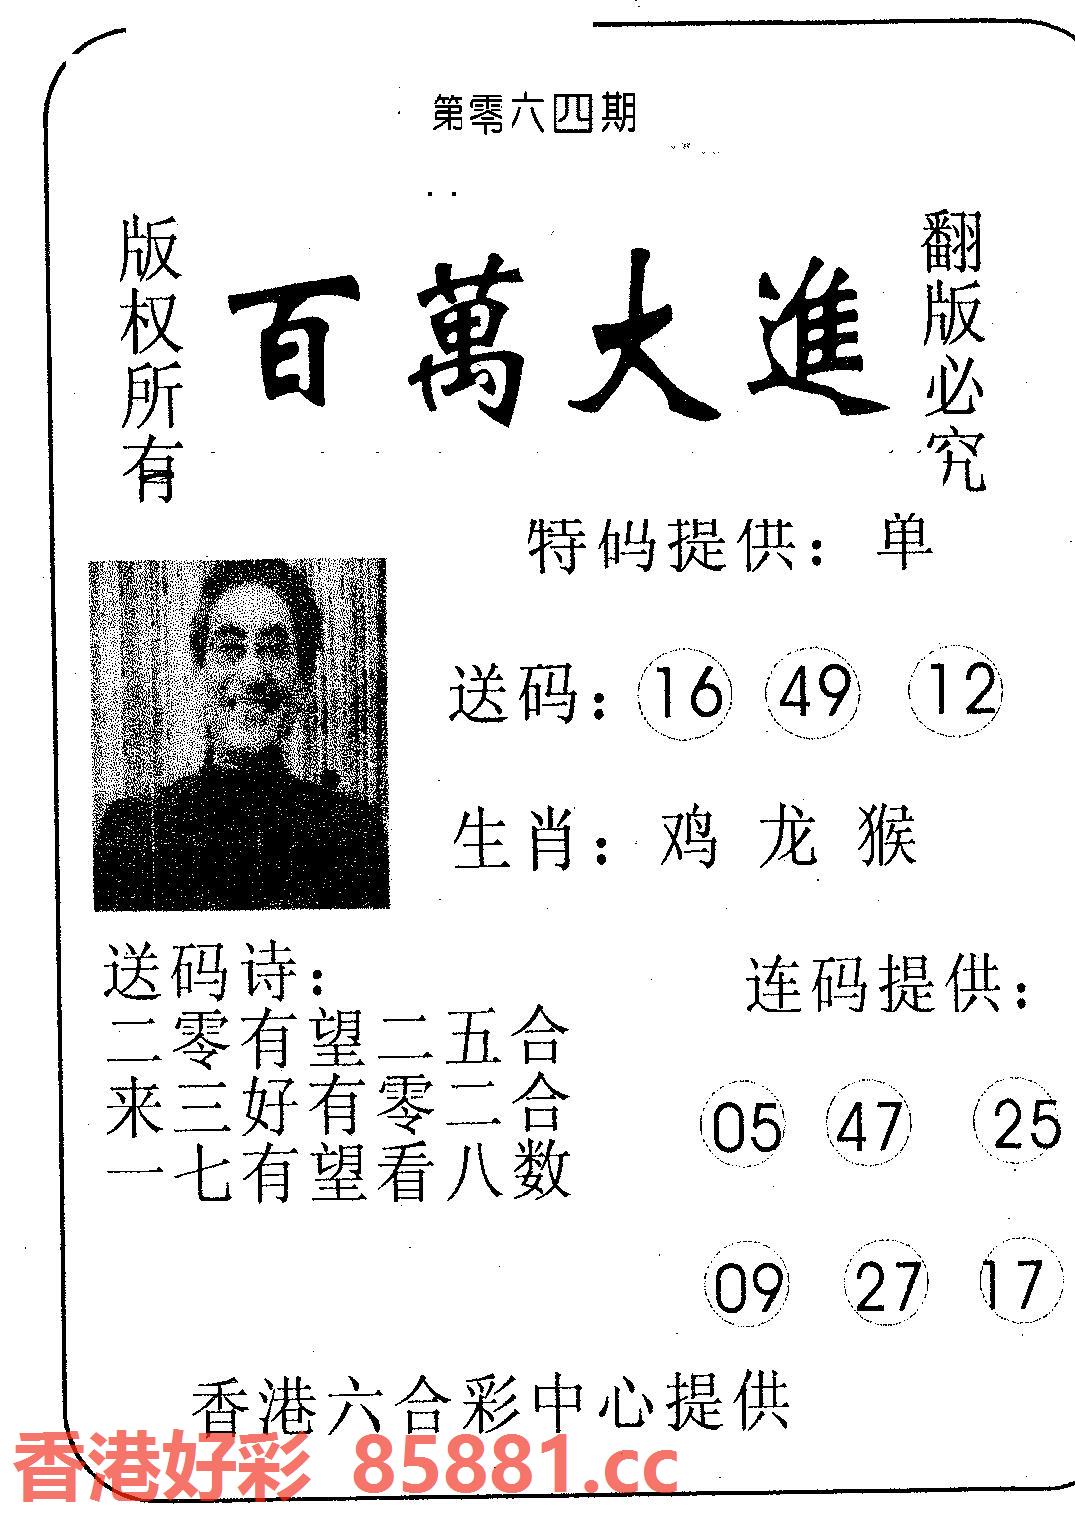 第零六四期
版权所有
百萬大進
翻版必究
特码提供：单
送码：16 49 12
生肖：鸡 龙 猴
送码诗：
二零有望二五合
来三好有零二合
一七有望看八数
连码提供：
05 47 25
09 27 17
香港六合彩中心提供
香港好彩 85881.cc